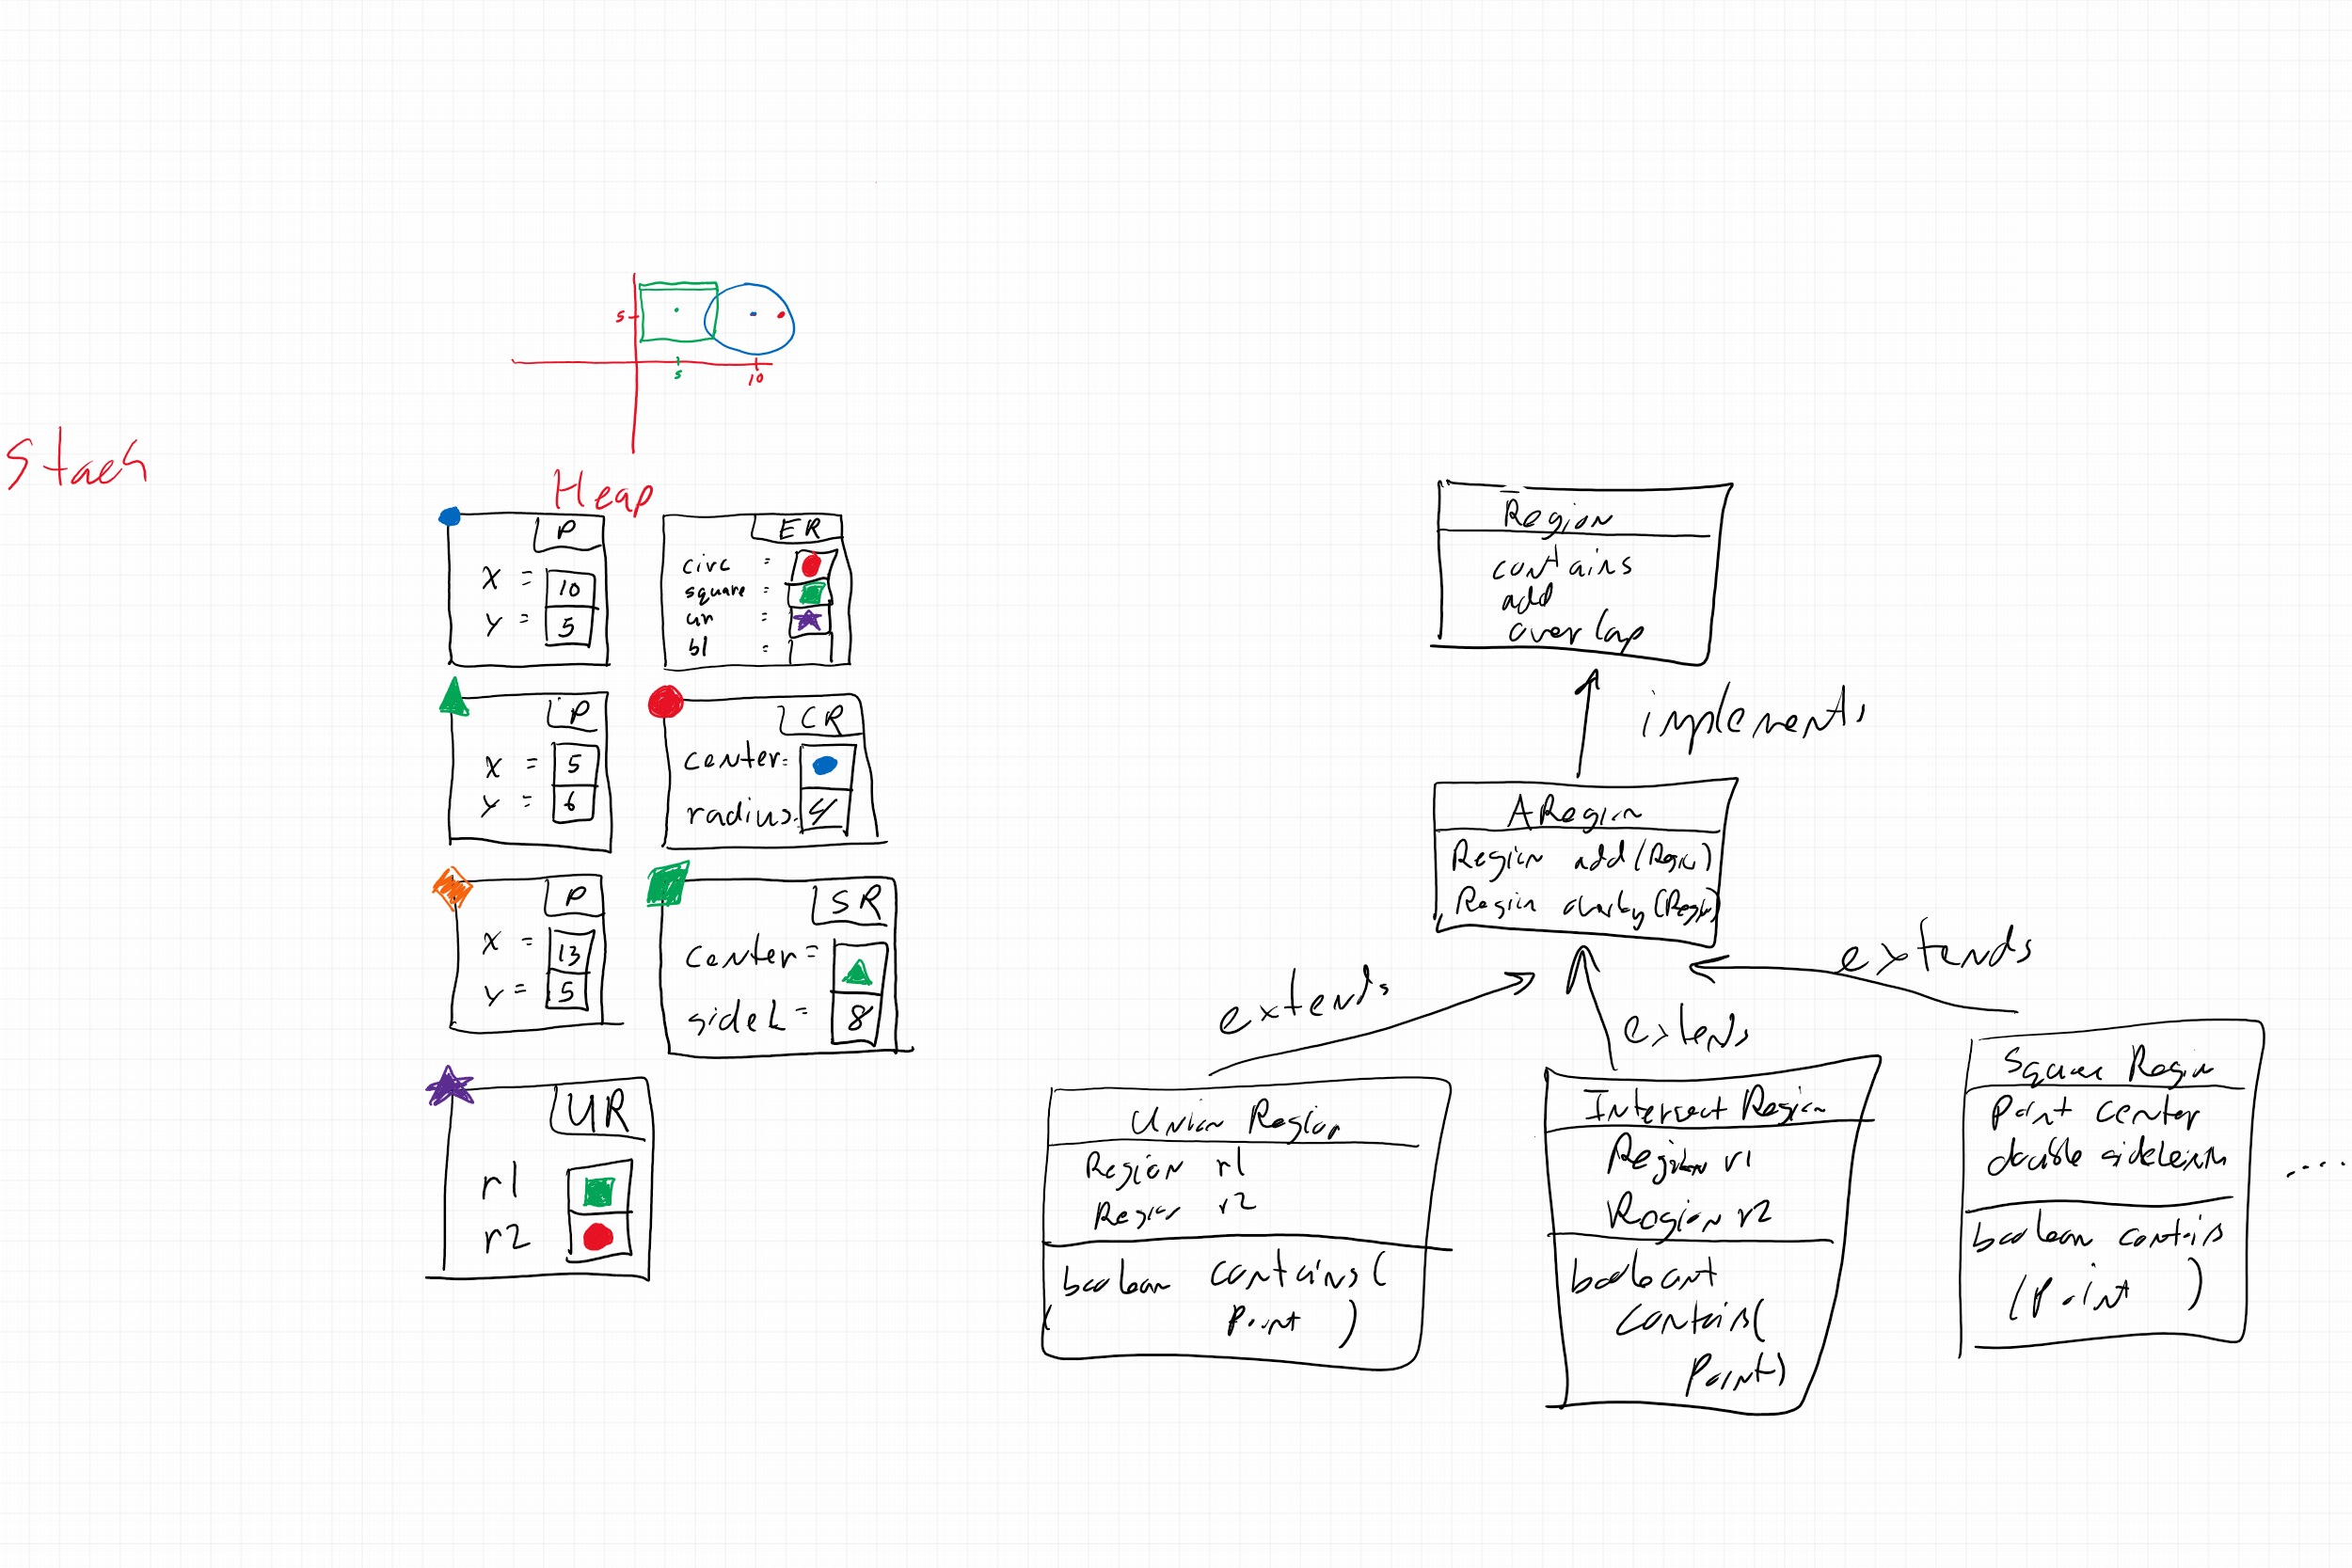 5
5
10
Stack
Heap
P
x = 10
y = 5
ER
circ =
square =
un =
bl =
P
x = 5
y = 6
CR
center=
radius= 4
P
x = 13
y = 5
SR
center =
sideL = 8
UR
r1
r2
Region
contains
add
overlap
implements
ARegion
Region add (Region)
Region overlap (Region)
extends
extends
extends
Union Region
Region r1
Region r2
boolean contains (
Point )
Intersect Region
Region r1
Region r2
boolean
contains(
Point)
Square Region
Point center
double sidelength
boolean contains
(Point )
....